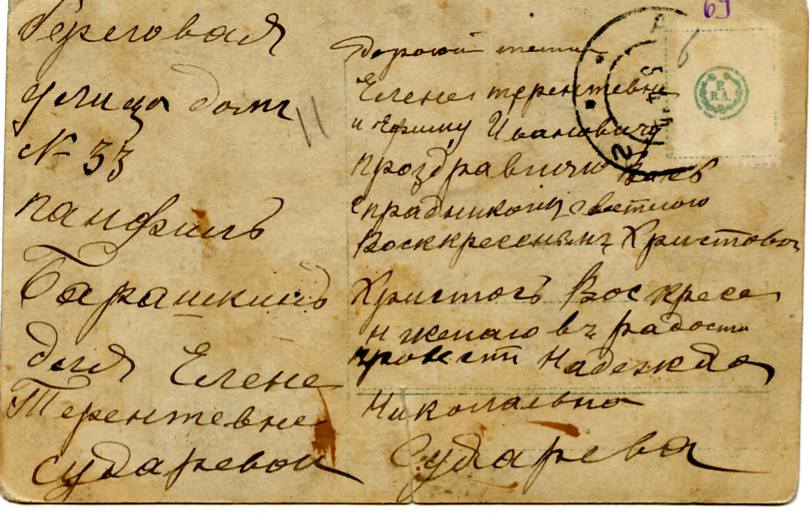 Береговая
улица домъ
№ 33
панфилъ
Барашкинъ
для Елене
Терентевне
сударевои
11
69
Дорогой тети
Елене терентевне
и Ефиму Ивановичу
проздравляю Васъ
спрадникомъ светлого
Воскресенымъ Христовом
Христосъ Воскресе
и желаю въ радости
провести Надежда
Николаевна
Сударева